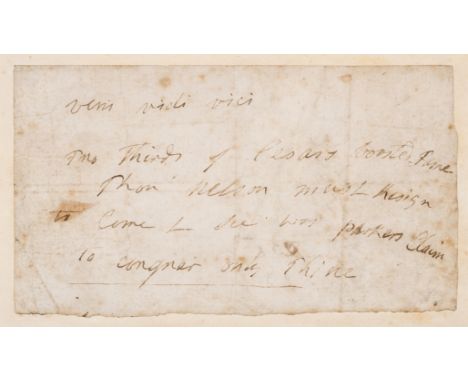 veni vidi vici
Two Thirds of Cesars boasted Fame
Thou Nelson must Resign
to Come & see was parkers Claim
To conquer Only Thine